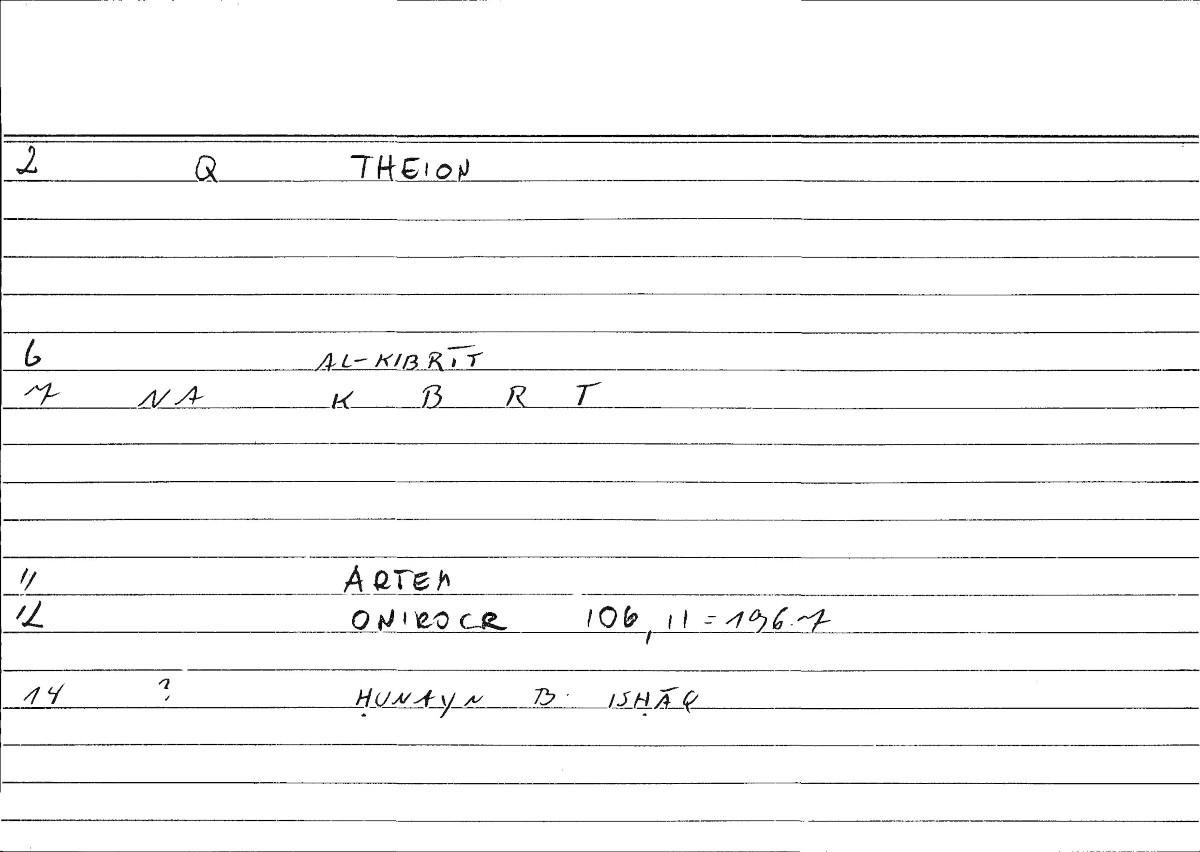 2 Q THEION
6 AL-KIBRĪT
7 NA K B R T
11 ARTEM
12 ONIROCR 106, 11 = 196.7
14 ? ḤUNAYN B. ISḤĀQ